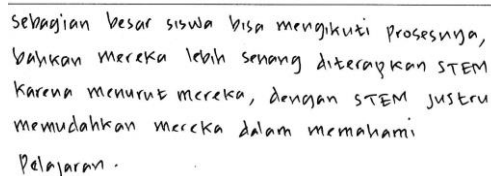 sebagian besar siswa bisa mengikuti prosesnya,
bahkan mereka lebih senang diterapkan STEM
karena menurut mereka, dengan STEM justru
memudahkan mereka dalam memahami
pelajaran.